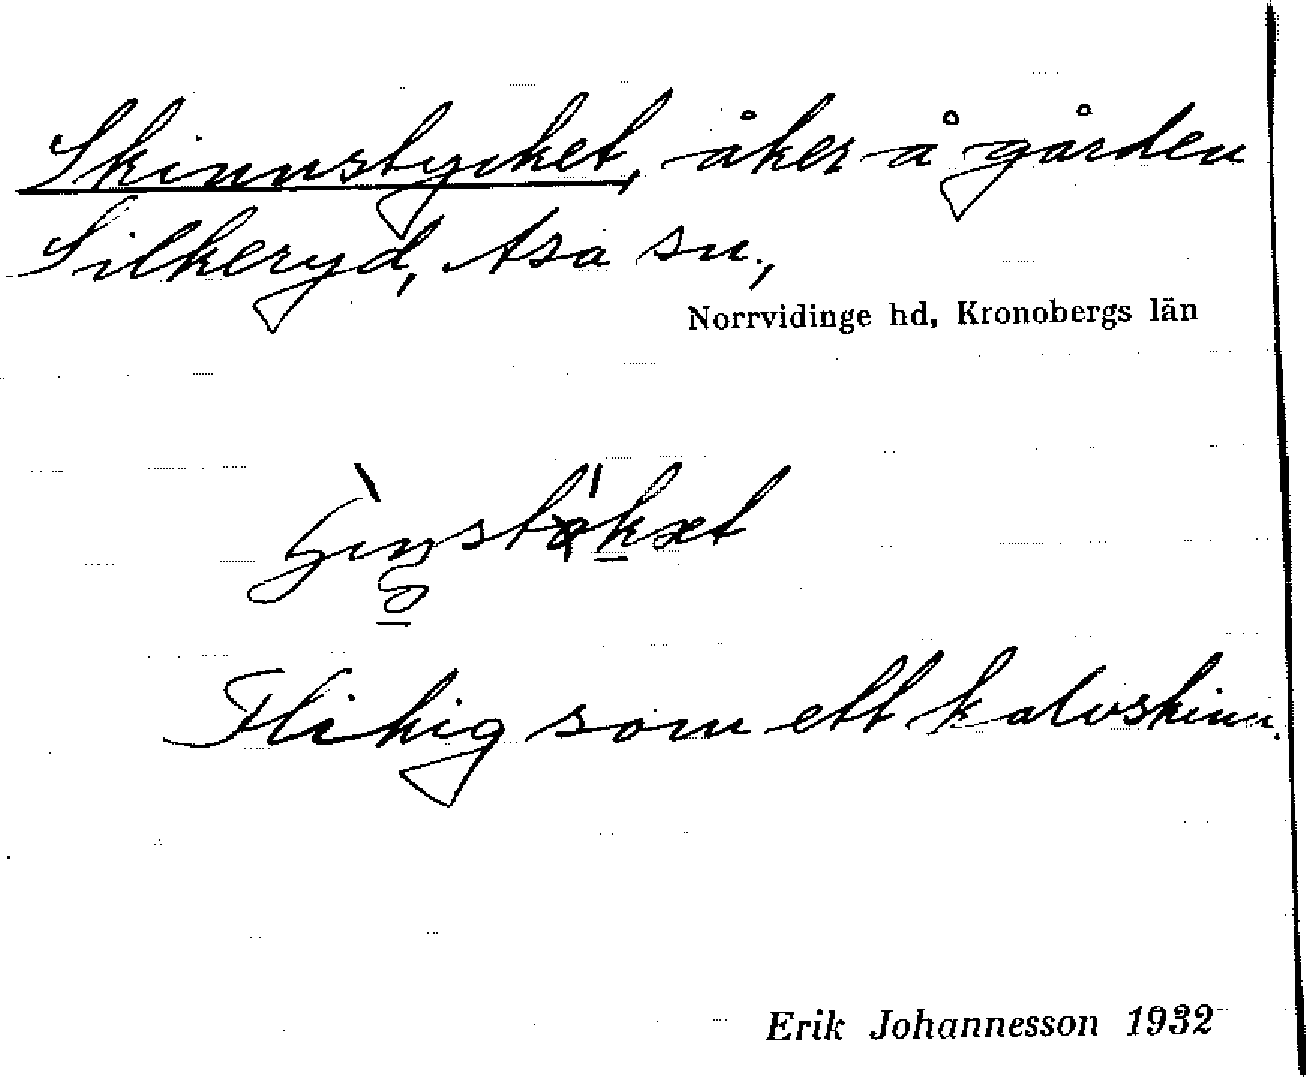 Skinnstycket, åker å gården
Silkeryd, Asa sn.,
Norrvidinge hd, Kronobergs län
Flikig som ett kalvskinn.
Erik Johannesson 1932